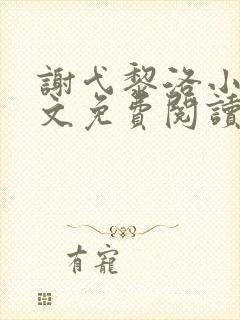 謝弋黎洛小
文免費閱讀
有寵